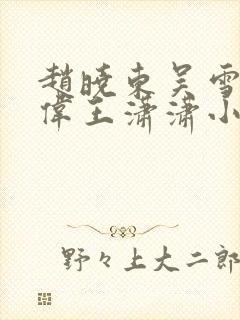 趙曉東吴雪
偉王瀟瀟小
野々上大二郎